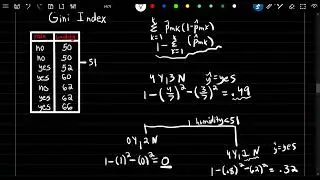 Gini Index
no 50
no 50
yes 52
yes 60
no 62
yes 62
yes 66
51
K
Σ p̂mk(1-p̂mk)
k=1
K
1 - Σ (p̂mk)
k=1
4Y,3N ŷ=yes
1-(4/7)²-(3/7)²=.49
humidity<51
0Y,2N
1-(1)²-(0)²=0
4Y,1N ŷ=yes
1-(.8)²-(.2)²=.32